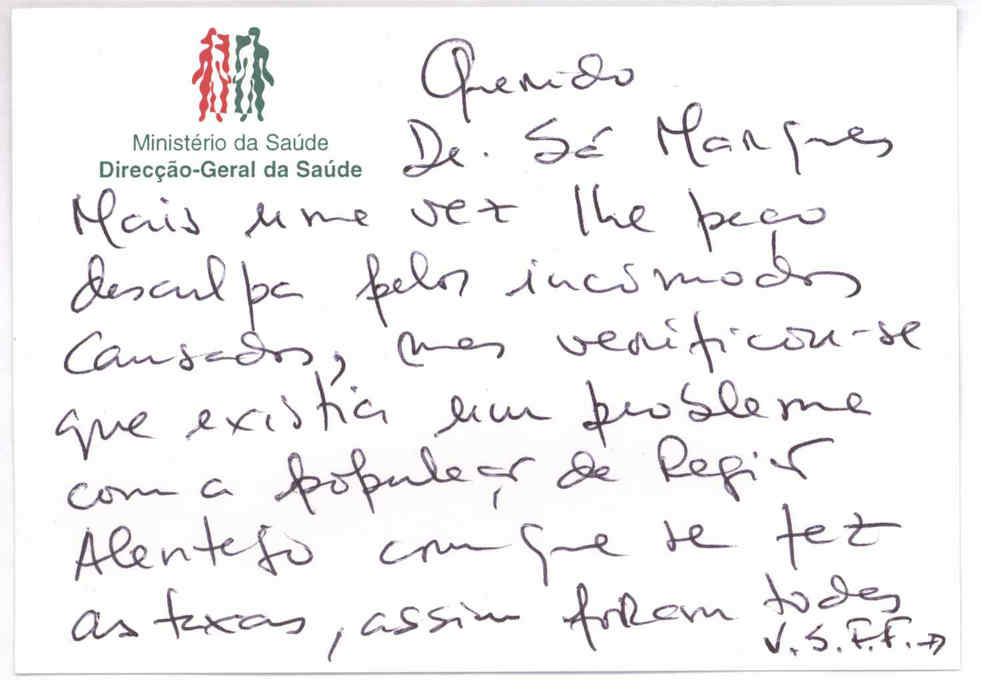 Ministério da Saúde
Direcção-Geral da Saúde
Querido
Dr. Sá Marques
Mais uma vez lhe peço
desculpa pelos incómodos
causados, mas verificou-se
que existia um problema
com a população da Região
Alentejo com que se fez
as taxas, assim foram todas
V.S.F.F.→